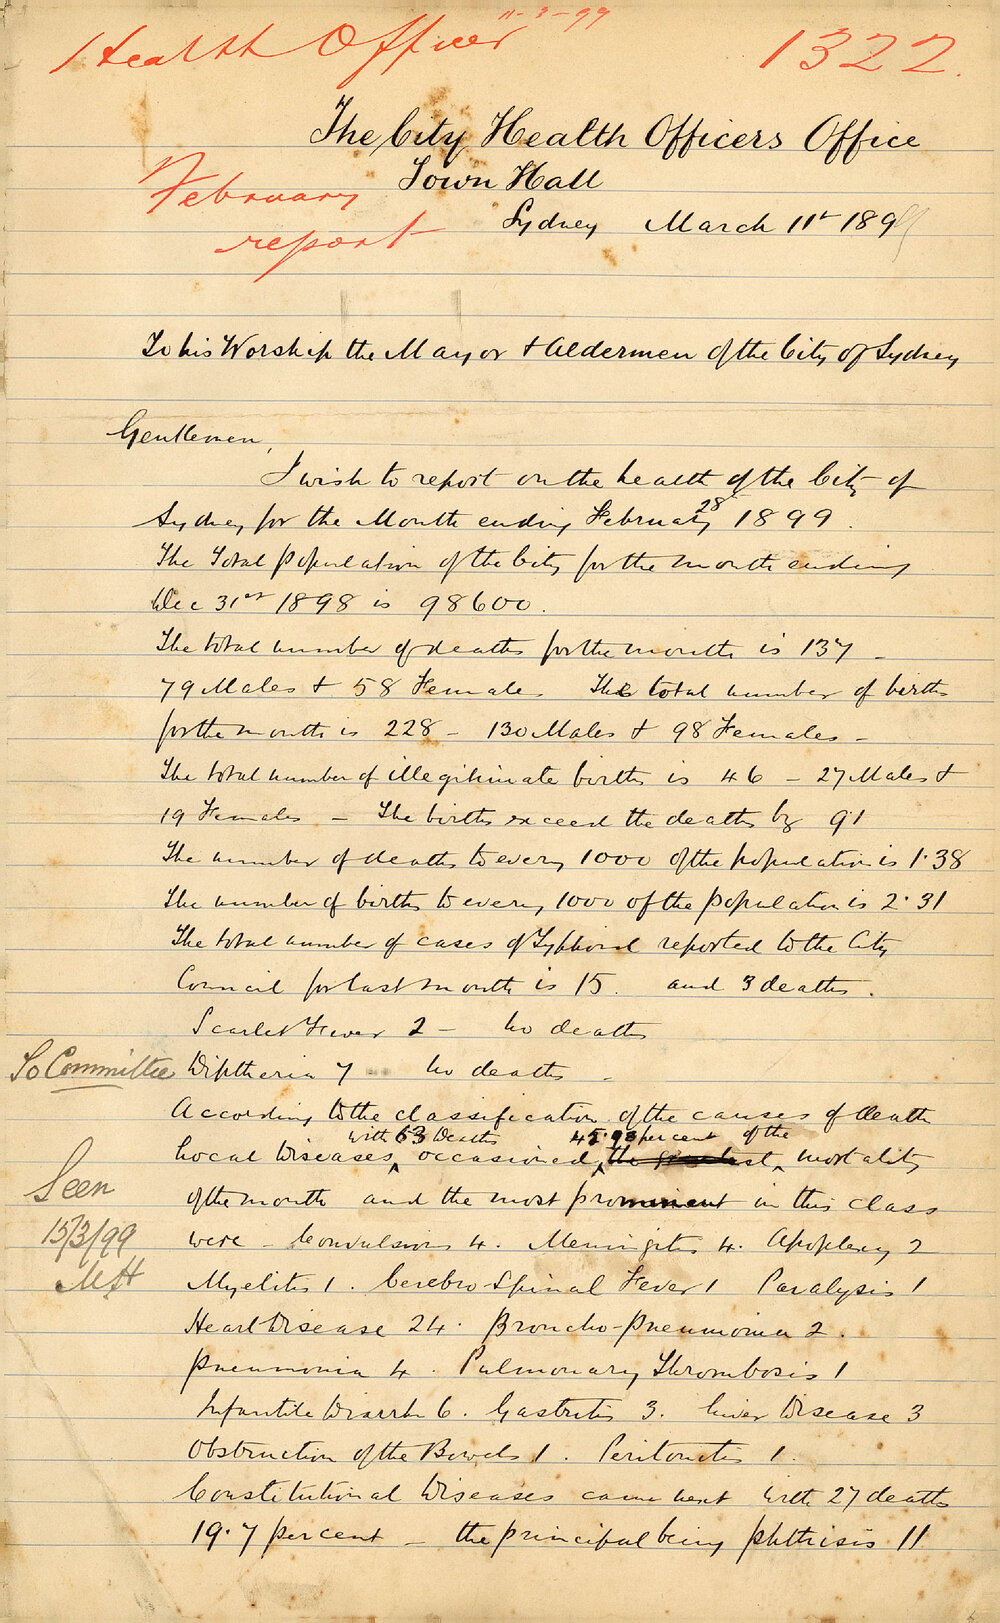 11-3-99
Health Officer 1322.
The City Health Officers Office
Town Hall
February
report
Sydney March 11th 1899
To his Worship the Mayor & Aldermen of the City of Sydney
Gentlemen,
I wish to report on the health of the City of
Sydney for the Month ending February 28 1899.
The total population of the City for the month ending
Dec 31st 1898 is 98600.
The total number of deaths for the month is 137 –
79 Males & 58 Females The total number of births
for the month is 228 – 130 Males & 98 Females –
The total number of illegitimate births is 46 – 27 Males &
19 Females – The births exceed the deaths by 91
The number of deaths to every 1000 of the population is 1·38
The number of births to every 1000 of the population is 2·31
The total number of cases of Typhoid reported to the City
Council for last month is 15. and 3 deaths.
Scarlet Fever 2 – no deaths
To Committee
Diptheria 7 – no deaths –
According to the classification of the causes of death
with 63 Deaths 45.98 percent of the
Local Diseases, occasioned, the greatest mortality
of the month and the most prominent in this class
Seen
15/3/99
MH
were – Convulsions 4. Meningitis 4. Apoplexy 2
Myelitis 1. Cerebro-Spinal Fever 1 Paralysis 1
Heart Disease 24. Broncho-pneumonia 2.
Pneumonia 4. Pulmonary Thrombosis 1
Infantile Diarrh 6. Gastritis 3. Liver Disease 3
Obstruction of the Bowels 1. Peritonitis 1.
Constitutional Diseases came next with 27 deaths
19·7 percent – the principal being phthisis 11